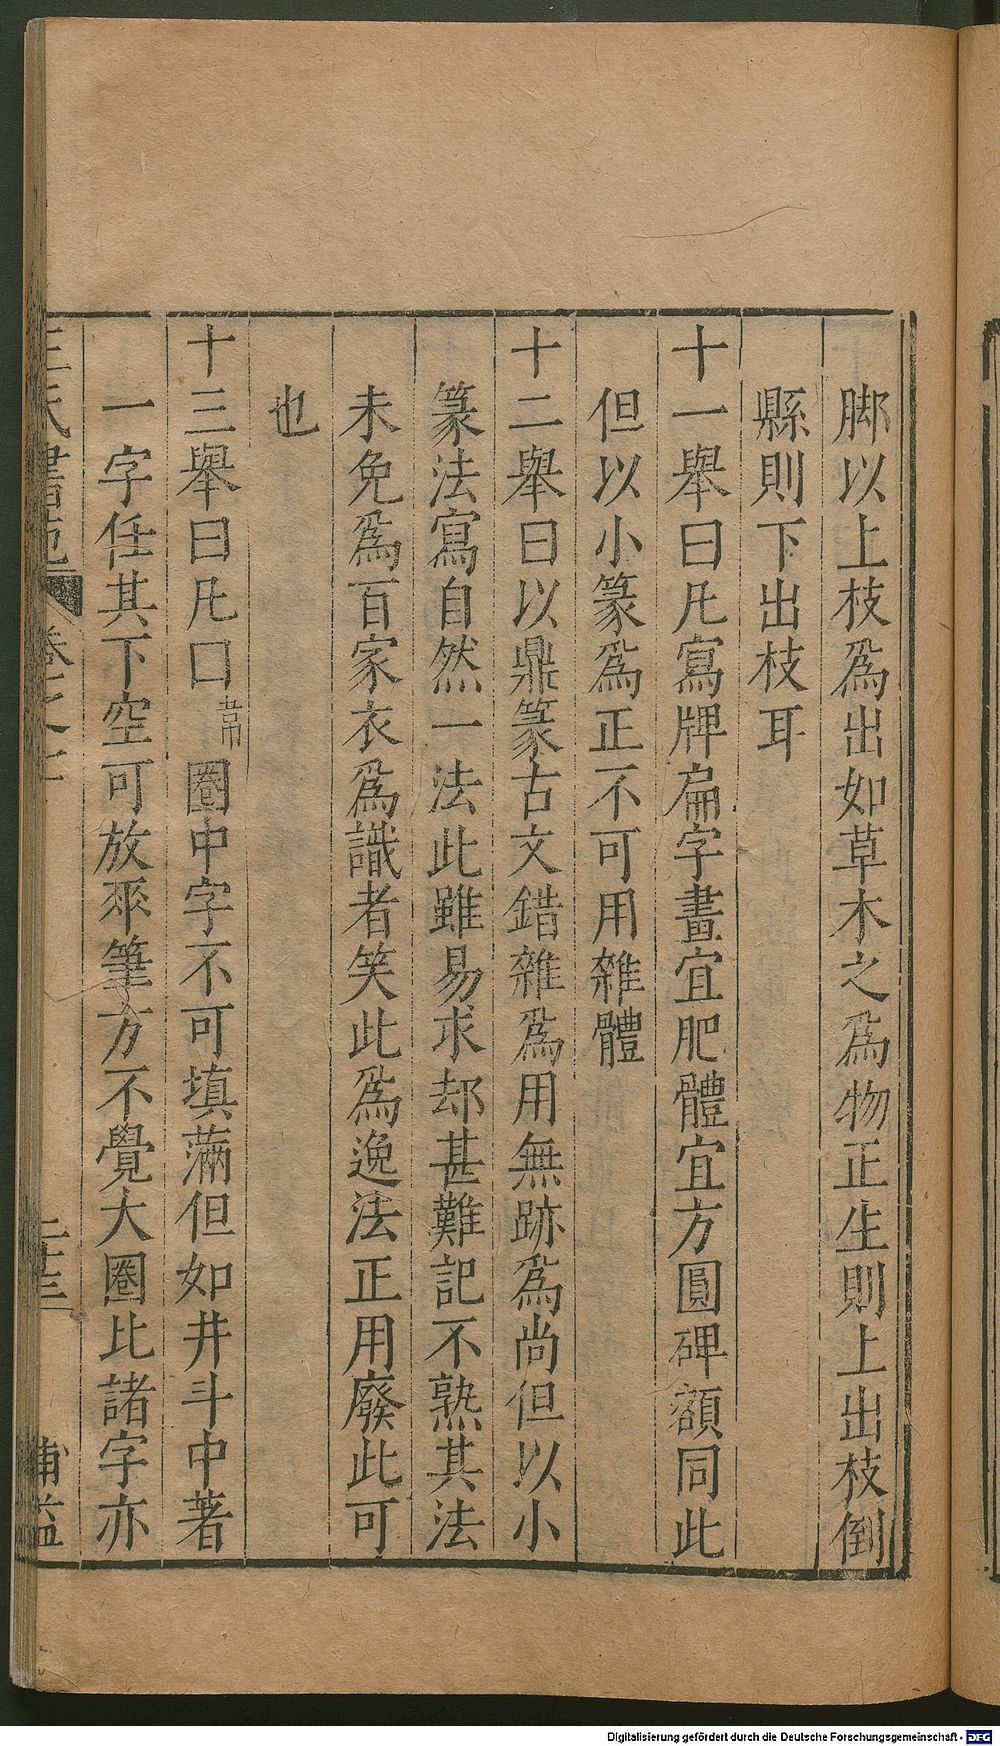 脚以上枝爲出如草木之爲物正生則上出枝倒
縣則下出枝耳
十一舉曰凡寫牌扁字畫宜肥體宜方圓碑額同此
但以小篆爲正不可用雜體
十二舉曰以鼎篆古文錯雜爲用無跡爲尚但以小
篆法寫自然一法此雖易求却甚難記不熟其法
未免爲百家衣爲識者笑此爲逸法正用廢此可
也
十三舉曰凡囗音韋圈中字不可填滿但如井斗中著
一字任其下空可放垂筆方不覺大圈比諸字亦
王氏書苑 卷之 二十三
Digitalisierung gefördert durch die Deutsche Forschungsgemeinschaft - DFG